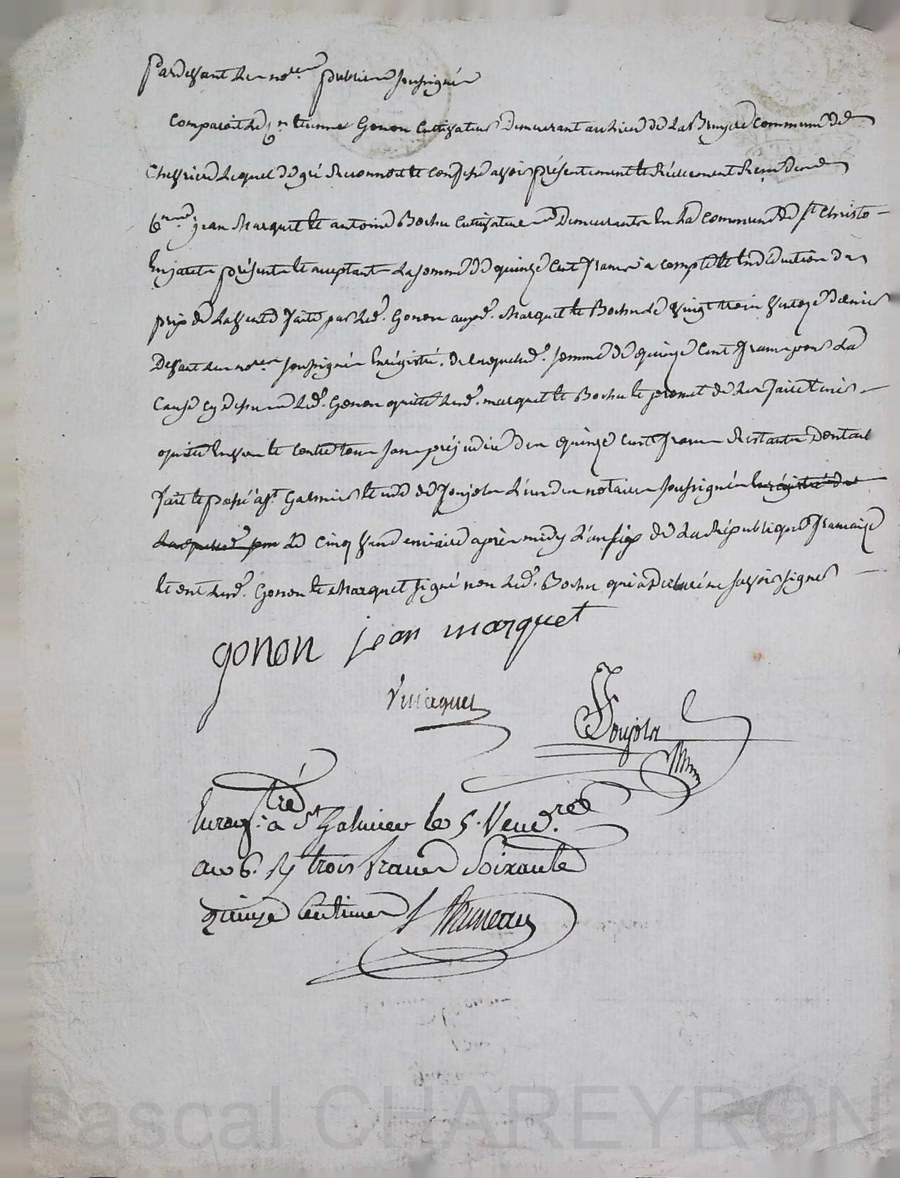 pardevant les no.res publics soussignés
Comparait le c.n etienne Gonon Cultivateur Demeurant au lieu de La Bruyere Commune de
Chevrieres Lequel de gré Reconnoit et Confesse avoir présentement et Réelement Reçu des
C.ens jean Marquet et antoine Bochu Cultivateurs Demeurants en la Commune de S.t Christo
En jarets présents et acceptants La somme de quinze Cent francs a compte et en déduction du
prix de La vente faite par led. Gonon auxd. Marquet et Bochu le vingt trois
Devant les no.res soussignés Enregistré. de laquelle d. somme de quinze Cent francs pour La
Cause cy dessus led. Gonon quitte lesd. marquet et Bochu et promet de les faire tenir
quittes Envers et Contre tous sans préjudice des quinze Cent francs Restants Dont act
fait et passé a S.t Galmier Etude de Joujola L'un des notaires soussignés Enregistré de
Laquelle d. pour Le Cinq Vendemiaire après midy L'an six de La République française
et ont lesd. Gonon et Marquet signé non led. Bochu qui a Déclaré ne savoir signer
gonon jean marquet
Joujola
Enregistré a S.t Galmier le 5. Vend.re
an 6. R/ trois francs Soixante
quinze Centimes Bruneau
Pascal CHAREYRON